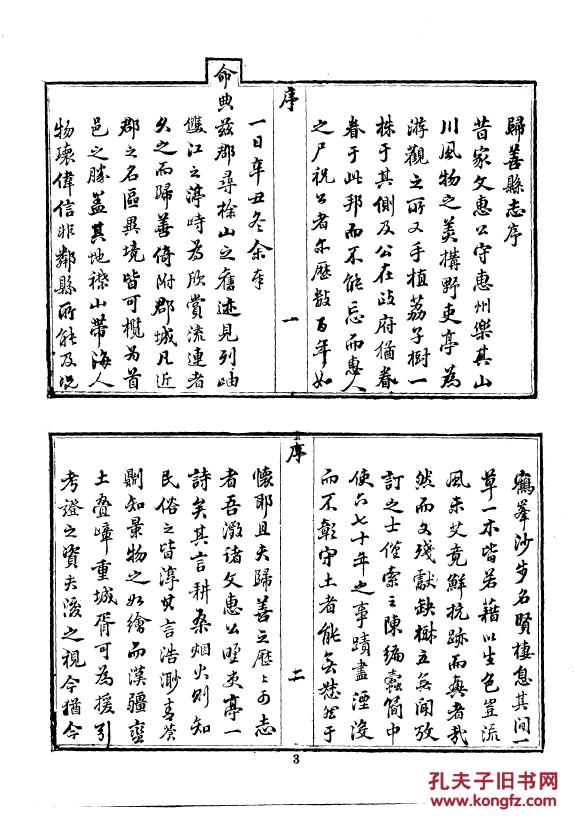 歸善縣志序
昔家文惠公守惠州樂其山
川風物之美構野吏亭為
游觀之所又手植荔子樹一
株于其側及公在政府猶眷
眷于此邦而不能忘而惠人
之尸祝公者亦歷數百年如
序
一
一日辛丑冬余奉
命典茲郡尋
山之舊迹見列岫
雙江之渟峙為欣賞流連者
久之而歸善倚附郡城凡近
郡之名區異境皆可攬為首
邑之勝蓋其地襟山帶海人
物瓌偉信非鄰縣所能及況
鶴峯沙步名賢棲息其間一
草一木皆若藉以生色豈流
風未艾竟鮮抗跡而興者哉
然而文殘獻缺樹立無聞攷
訂之士僅索之陳編蠹簡中
使六七十年之事蹟盡湮沒
而不彰守土者能無愁然于
序
二
懷耶且夫歸善之歷歷可志
者吾徵諸文惠公野吏亭一
詩矣其言耕桑烟火則知
民俗之皆淳其言浩渺青蒼
則知景物之如繪而漢疆蠻
土疊嶂重城胥可為援引
考證之資夫後之視今猶今
3
孔夫子旧书网
www.kongfz.com